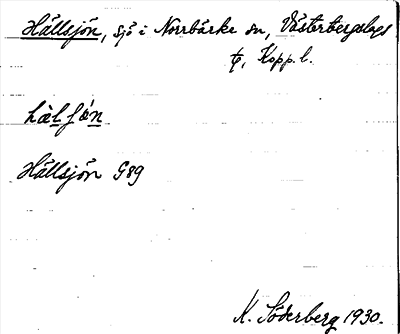 Hällsjön, sjö i Norrbärke sn, Västerbergslags
tg, Kopp. l.
Hällsjön G89
K. Söderberg 1930.